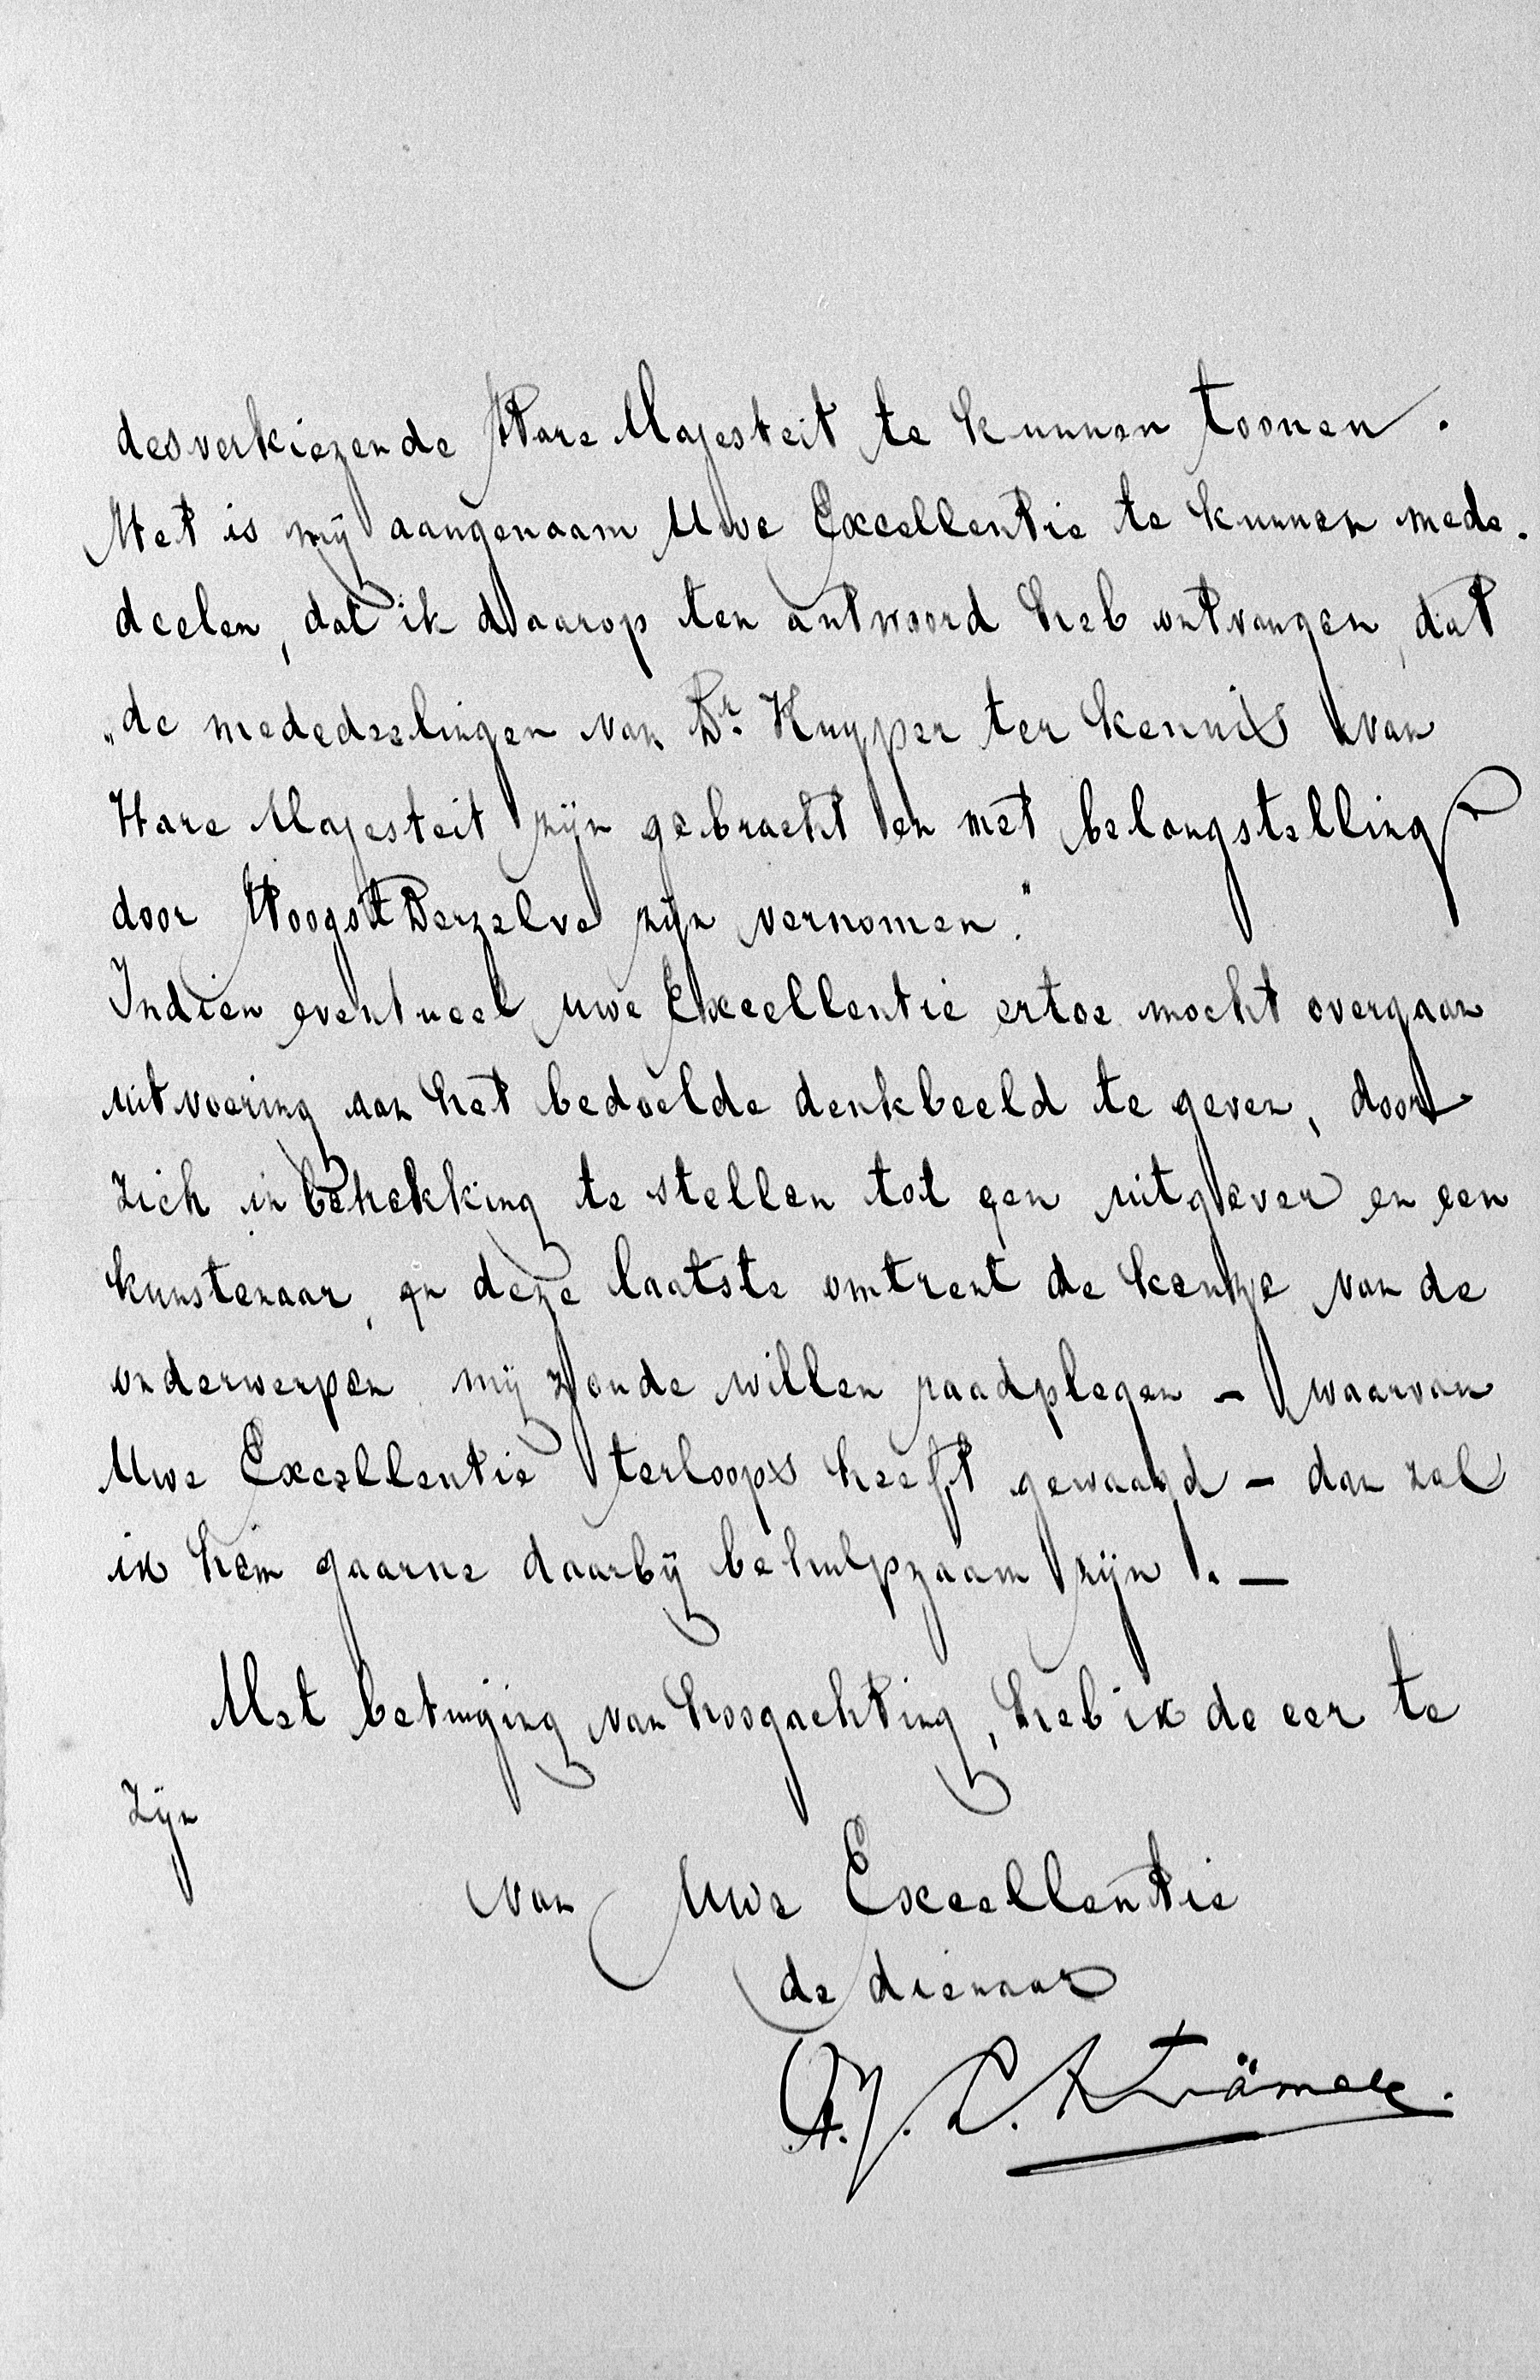 desverkiezende Hare Majesteit te kunnen toonen.
Het is mij aangenaam Uwe Excellentie te kunnen mede-
deelen, dat ik daarop ten antwoord heb ontvangen, dat
„de mededeelingen van Dr. Kuyper ter kennis van
Hare Majesteit zijn gebracht en met belangstelling
door HoogstDerzelve zijn vernomen."
Indien eventueel Uwe Excellentie ertoe mocht overgaan
uitvoering aan het bedoelde denkbeeld te geven, door
zich in betrekking te stellen tot een uitgever en een
kunstenaar, en deze laatste omtrent de keuze van de
onderwerpen mij zoude willen raadplegen – waarvan
Uwe Excellentie terloops heeft gewaagd – dan zal
ik hem gaarne daarbij behulpzaam zijn. –
Met betuiging van hoogachting, heb ik de eer te
zijn
van Uwe Excellentie
de dienaar
A. J. C. Krämer.